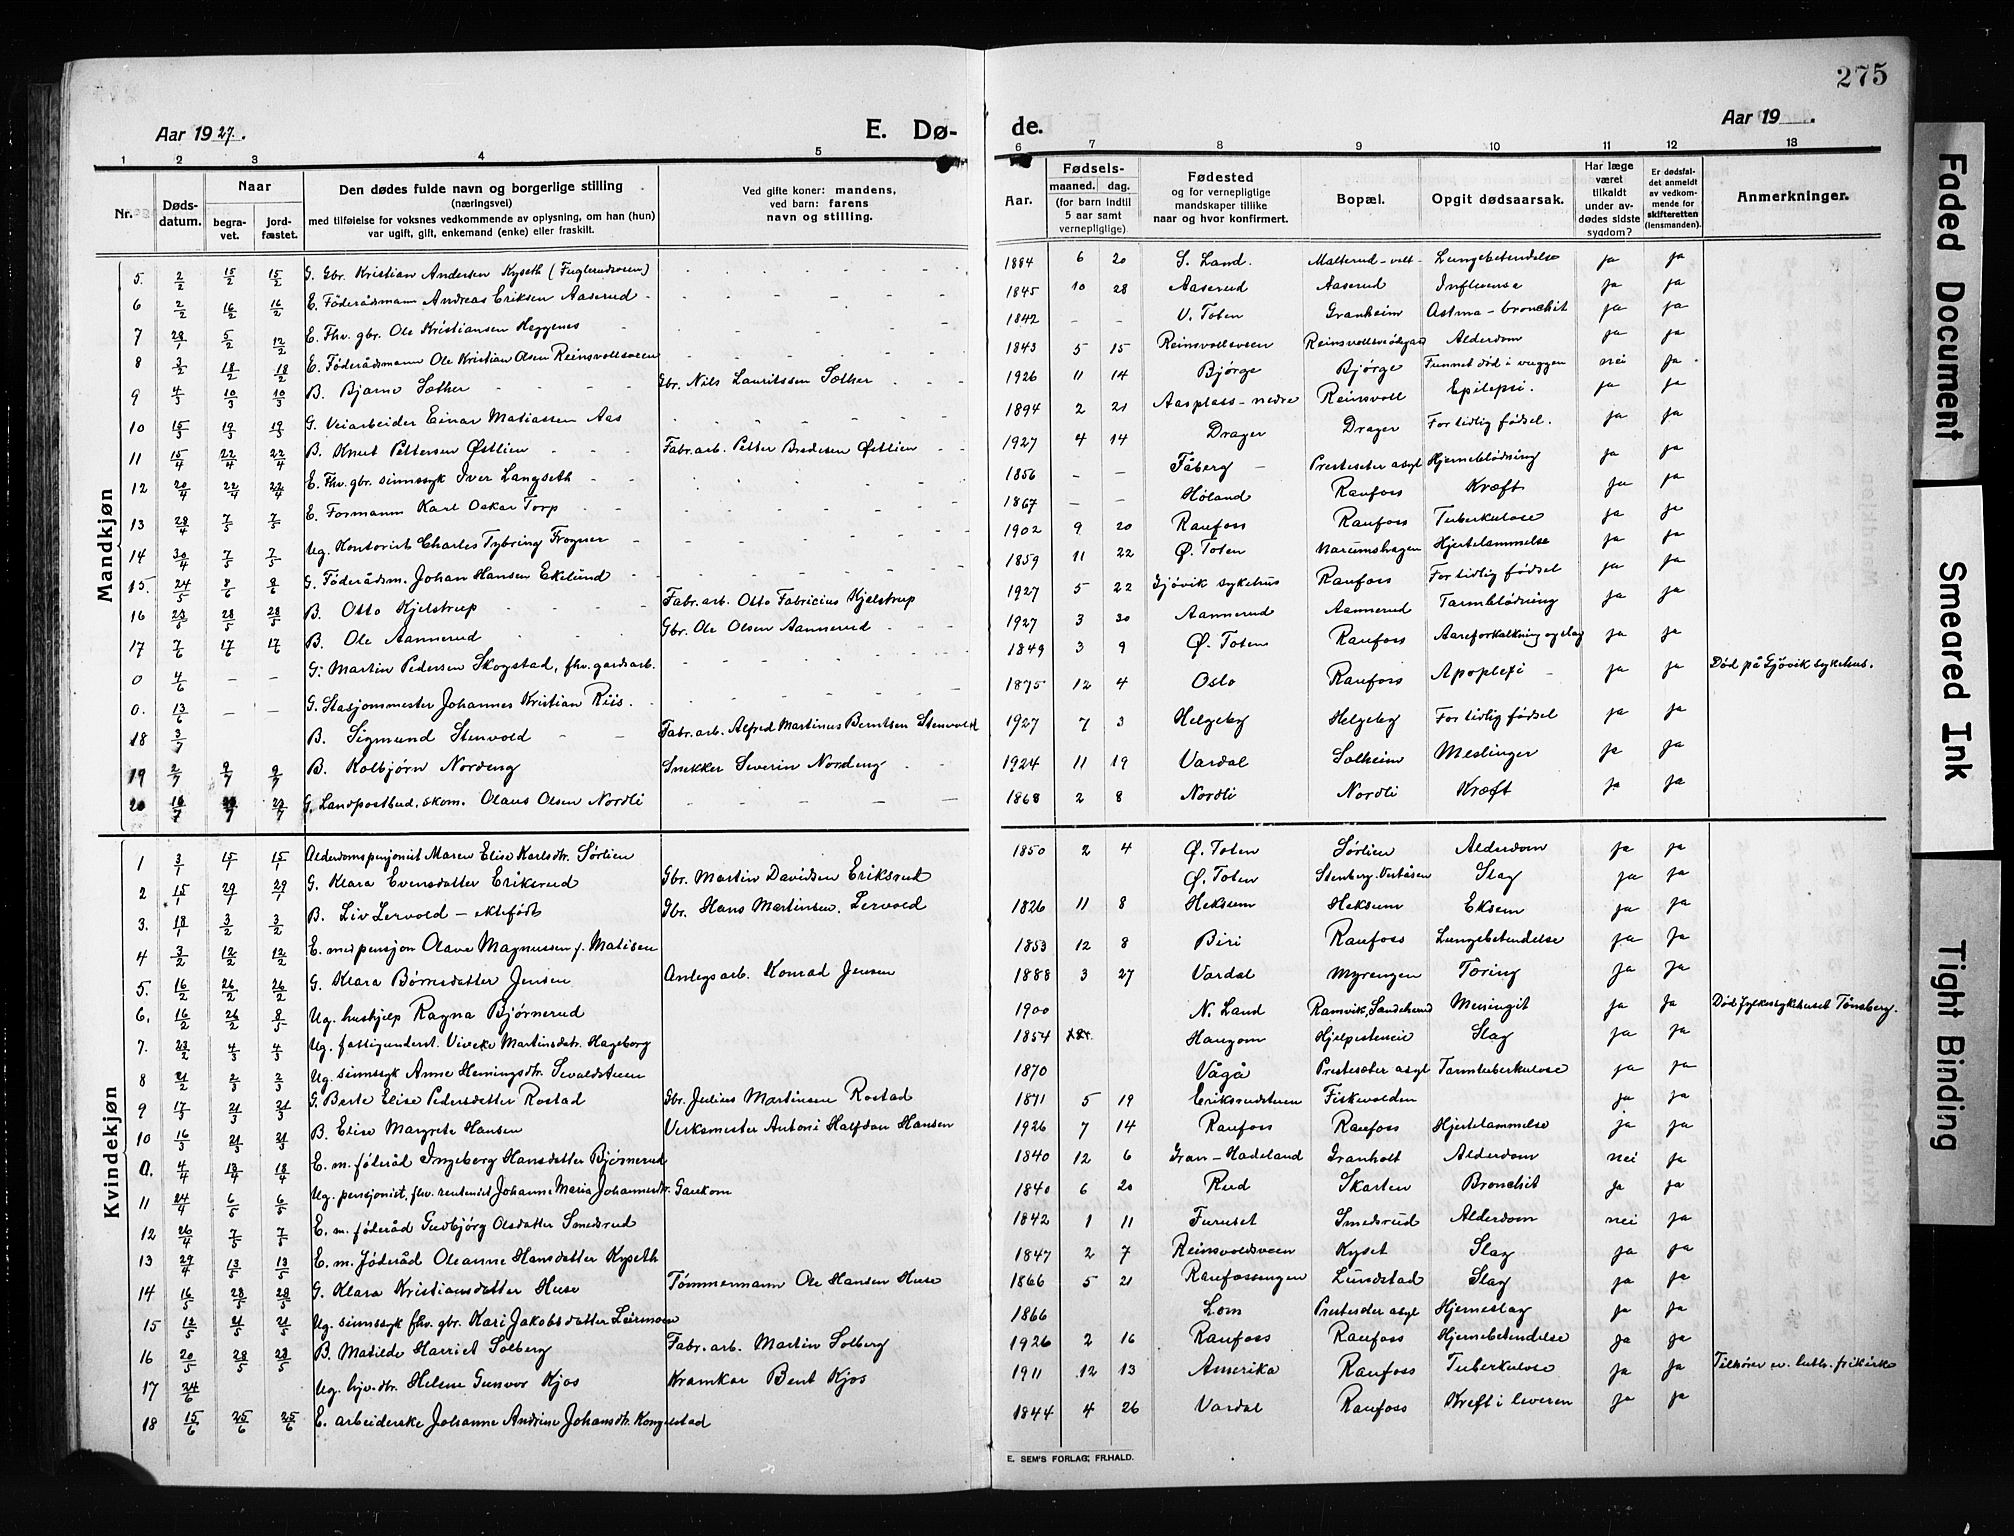 275
Aar 1927.
E. Dø-
de.
Aar 19
1 2 3 4 5
6 7 8 9 10 11 12 13
Nr.
Døds-datum.
Naar
begra-vet.
jord-fæstet.
Den dødes fulde navn og borgerlige stilling
(næringsvei)
med tilføielse for voksnes vedkommende av oplysning, om han (hun)
var ugift, gift, enkemand (enke) eller fraskilt.
Ved gifte koner: mandens,
ved barn: farens
navn og stilling.
Aar.
Fødsels-
maaned. dag.
(for barn indtil
5 aar samt
vernepligtige)
Fødested
og for vernepligtige
mandskaper tillike
naar og hvor konfirmert.
Bopæl.
Opgit dødsaarsak.
Har læge
været
tilkaldt
under av-
dødes sidste
sygdom?
Er dødsfal-
det anmeldt
av vedkom-
mende for
skifteretten
(lensmanden).
Anmerkninger.
Mandkjøn
5. 2/2 15/2 15/2 G. Gbr. Kristian Andersen Kyseth (Fuglerudsveen) 1884 6 20 S. Land. Malterud-valt- Lungebetendelse ja ja
6 2/2 16/2 16/2 E. Føderådmann Andreas Eriksen Aaserud 1845 10 28 Aaserud Aaserud Influense ja ja
7 29/1 5/2 12/2 E. Fhv. gbr. Ole Kristiansen Heggenes 1842 - - V. Toten Granheim Astma-bronchit ja ja
8 3/2 18/2 18/2 E. Føderådmann Ole Kristian Olsen Reinsvollsveen 1843 5 15 Reinsvollsveen Alderdom ja ja
9 4/3 10/3 10/3 B. Bjarne Sæther Gbr. Nils Lauritssen Sæther 1926 11 14 Bjørge Bjørge Funnet død i vuggen nei ja
10 15/3 19/3 19/3 G. Veiarbeider Einar Matiassen Aas 1894 2 21 Aasplass-nedre Reinsvoll Epilepsi. ja ja
11 15/4 22/4 22/4 B. Knut Pettersen Østlien Fabr.arb. Petter Østlien 1927 4 14 Drager Drager For tidlig fødsel. ja ja
12 20/4 22/4 22/4 E. Fhv. gbr. sinnssyk Iver Langseth 1856 - - Fåberg Presteseter asyl Hjerneblødning ja ja
13 28/4 7/5 7/5 E. Formann Karl Oskar Torp 1867 - - Høland Raufoss Kræft ja ja
14 30/4 7/5 7/5 Ug. Kontorist Charles Tybring Frogner 1902 9 20 Raufoss Raufoss Tuberkulose ja ja
15. 24/5 8/6 8/6 G. Føderådsm. Johan Hansen Ekelund 1859 11 22 Ø. Toten Narumshagen Hjertelammelse ja ja
16 28/5 28/5 B. Otto Kjelstrup Fabr.arb. Otto Fabricius Kjelstrup 1927 5 22 Gjøvik sykehus Raufoss For tidlig fødsel ja ja
17 7/6 17/6 17/6 B. Ole Aannerud Gbr. Ole Olsen Aannerud 1927 3 30 Aannerud Aannerud Tarmblødning ja ja
0 4/6 - - G. Martin Pedersen Skogstad, fhv. gardsarb. 1849 3 9 Ø. Toten Raufoss Aareforkalkning og slag ja ja
0. 13/6 - - G. Stasjonmester Johannes Kristian Riis. 1875 12 4 Oslo Raufoss Apoplexi ja ja Død på Gjøvik sykehus.
18 3/7 B. Sigmund Stenvold Fabr.arb. Alfred Martinus Berntsen Stenvold 1927 7 3 Helgeby Helgeby For tidlig fødsel ja ja
19 2/7 9/7 9/7 B. Kolbjørn Nordeng Snekker Severin Nordeng 1924 11 19 Vardal Solheim Meslinger ja ja
20 G. Landpostbud, skom. Olaus Olsen Nordli 1868 2 8 Nordli Nordli Kræft ja ja
Kvindekjøn
1 3/1 15/1 15/1 Alderdomspensjonist Maren Elise Karlsdtr. Sørlien 1850 2 4 Ø. Toten Sørlien Alderdom ja ja
2 15/1 29/1 29/1 G. Klara Evensdatter Eriksrud Gbr. Martin Davidsen Eriksrud Ø. Toten Stenberg. Slag ja ja
3. 18/1 3/2 3/2 B. Liv Lervold - ektefødt Gbr. Hans Martinsen. Lervold 1826 11 8 Heksum Heksum Eksem ja ja
4 3/2 12/2 12/2 E. med pensjon Olava Magnussen f. Matisen 1853 12 8 Biri Raufoss Lungebetendelse ja ja
5. 16/2 26/2 26/2 G. Klara Børresdatter Jensen Anlegsarb. Konrad Jensen 1888 3 27 Vardal Myrengen Tøring ja ja
6. 16/2 26/2 8/5 Ug. hushjelp Ragna Bjørnerud 1900 N. Land Ramvik, Sandeherred Meningit ja ja Død fylkessykehuset Tønsberg.
7. 23/2 4/3 4/3 Ug. fattigunderst. Viveke Martinsdatr. Hageborg 1854 Haugom Slag ja ja
8 21/2 2/3 2/3 Ug. sinnssyk Anne Hemingsdtr. 1870 Vågå Presteseter asyl Tarmtuberkulose ja ja
9 17/3 21/3 21/3 G. Berte Elise Pedersdatter Rostad Gbr. Julius Martinsen Rostad 1871 5 19 Eriksrudstuen Fiskevolden ja ja
10 16/3 21/3 21/3 B. Elise Margrete Hansen Verksmester Antoni Halfdan Hansen 1926 7 14 Raufoss Raufoss Hjertelammelse ja ja
0. 4/4 18/4 E. m. føderåd Ingeberg Hansdatter Bjørnerud 1840 12 6 Gran-Hadeland Granholt Alderdom nei ja
11 24/4 6/5 6/5 Ug. pensjonist, fhv. rentenist Johanne Maria Johannesdtr. Gaukom 1840 6 20 Rud Skarten Bronchit ja ja
12 26/4 7/5 7/5 E. m. føderåd Gudbjørg Olsdatter Smedsrud 1842 1 11 Furuset Smedsrud Alderdom nei ja
13 29/4 13/5 13/5 E. m. føderåd Oleanne Hansdatter Kyseth 1847 2 7 Reinsvoldsveen Kyset Slag ja ja
14 16/5 28/5 28/5 G. Klara Kristiansdatter Huse Tømmermann Ole Hansen Huse 1866 5 21 Raufossengen Lundstad Slag ja ja
15 12/5 21/5 21/5 Ug. sinnssyk fhv. gbr. Kari Jakobsdatter Leirmoen 1866 Lom Presteseter asyl Hjerneslag ja ja
16 20/5 28/5 28/5 B. Matilde Harriet Solberg Fabr.arb. Martin Solberg 1926 2 16 Raufoss Raufoss Hjernebetendelse ja ja
17 24/6 Ug. hjv.dtr. Helene Gunvor Kjos Kramkar Bent Kjos 1911 12 13 Amerika Raufoss Tuberkulose ja ja Tilhører ev. luth. frikirke
18 15/6 25/6 25/6 E. arbeiderske Johanne Andrine Johansdtr. Kongelstad 1844 4 26 Vardal Raufoss Kreft i leveren ja ja
E. SEM'S FORLAG; FR.HALD.
Faded Document
Smeared Ink
Tight Binding